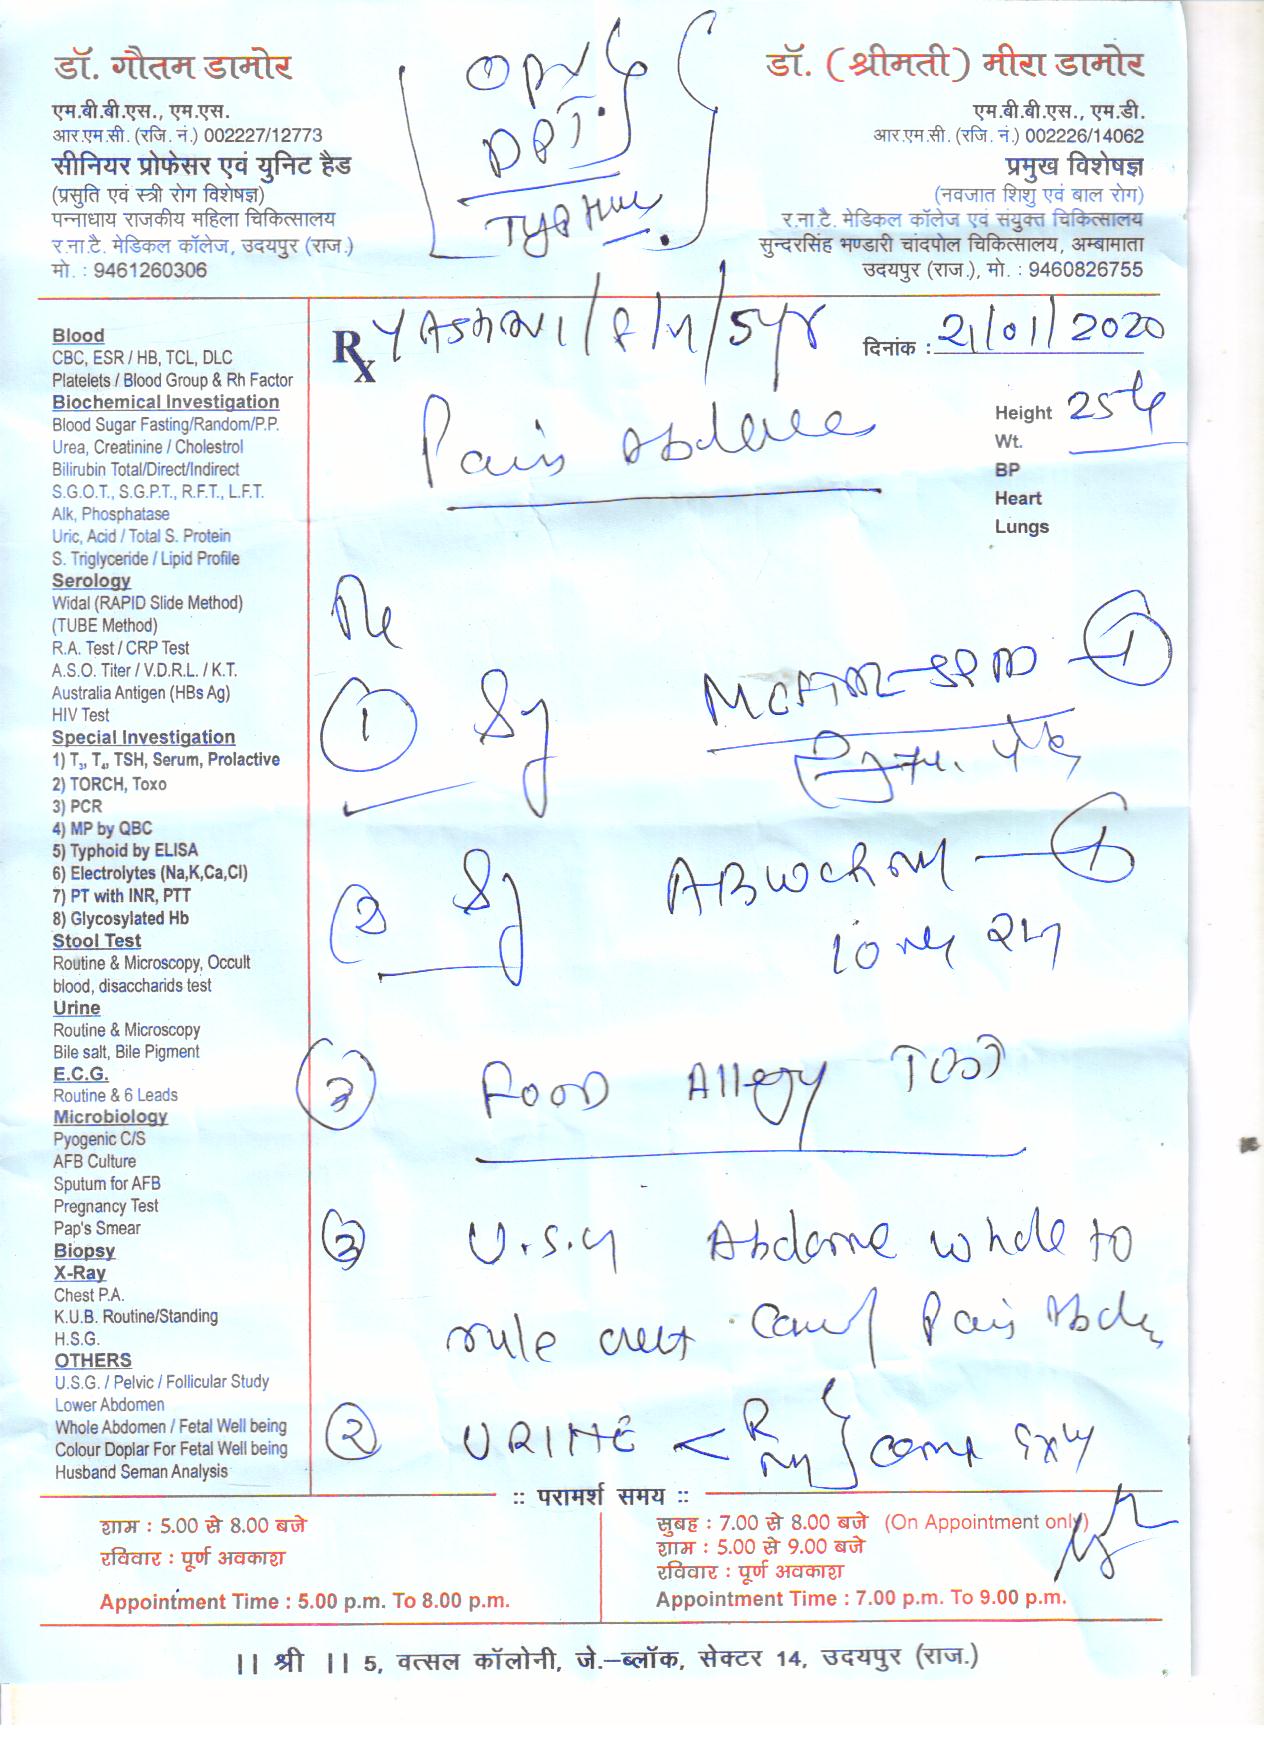 डॉ. गौतम डामोर
एम.बी.बी.एस., एम.एस.
आर.एम.सी. (रजि. नं.) 002227/12773
सीनियर प्रोफेसर एवं युनिट हैड
(प्रसुति एवं स्त्री रोग विशेषज्ञ)
पन्नाधाय राजकीय महिला चिकित्सालय
र.ना.टै. मेडिकल कॉलेज, उदयपुर (राज.)
मो. : 9461260306
OPV
DPT
डॉ. (श्रीमती) मीरा डामोर
एम.बी.बी.एस., एम.डी.
आर.एम.सी. (रजि. नं.) 002226/14062
प्रमुख विशेषज्ञ
(नवजात शिशु एवं बाल रोग)
र.ना.टै. मेडिकल कॉलेज एवं संयुक्त चिकित्सालय
सुन्दरसिंह भण्डारी चांदपोल चिकित्सालय, अम्बामाता
उदयपुर (राज.), मो. : 9460826755
Blood
CBC, ESR / HB, TCL, DLC
Platelets / Blood Group & Rh Factor
Biochemical Investigation
Blood Sugar Fasting/Random/P.P.
Urea, Creatinine / Cholestrol
Bilirubin Total/Direct/Indirect
S.G.O.T., S.G.P.T., R.F.T., L.F.T.
Alk, Phosphatase
Uric, Acid / Total S. Protein
S. Triglyceride / Lipid Profile
Serology
Widal (RAPID Slide Method)
(TUBE Method)
R.A. Test / CRP Test
A.S.O. Titer / V.D.R.L. / K.T.
Australia Antigen (HBs Ag)
HIV Test
Special Investigation
1) T₃, T₄, TSH, Serum, Prolactive
2) TORCH, Toxo
3) PCR
4) MP by QBC
5) Typhoid by ELISA
6) Electrolytes (Na,K,Ca,Cl)
7) PT with INR, PTT
8) Glycosylated Hb
Stool Test
Routine & Microscopy, Occult
blood, disaccharids test
Urine
Routine & Microscopy
Bile salt, Bile Pigment
E.C.G.
Routine & 6 Leads
Microbiology
Pyogenic C/S
AFB Culture
Sputum for AFB
Pregnancy Test
Pap's Smear
Biopsy
X-Ray
Chest P.A.
K.U.B. Routine/Standing
H.S.G.
OTHERS
U.S.G. / Pelvic / Follicular Study
Lower Abdomen
Whole Abdomen / Fetal Well being
Colour Doplar For Fetal Well being
Husband Seman Analysis
Rx /5yr
दिनांक : 21/01/2020
Pain
Height
Wt.
BP
Heart
Lungs
① Sy
② Sy
③ FOOD Allergy TEST
③ U.S.G whole to
rule out Pain
② URINE
:: परामर्श समय ::
शाम : 5.00 से 8.00 बजे
रविवार : पूर्ण अवकाश
Appointment Time : 5.00 p.m. To 8.00 p.m.
सुबह : 7.00 से 8.00 बजे (On Appointment only)
शाम : 5.00 से 9.00 बजे
रविवार : पूर्ण अवकाश
Appointment Time : 7.00 p.m. To 9.00 p.m.
|| श्री || 5, वत्सल कॉलोनी, जे.–ब्लॉक, सेक्टर 14, उदयपुर (राज.)